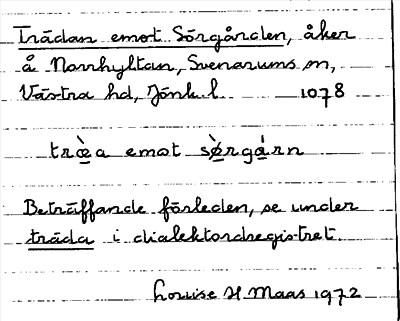 Trädan emot Sörgården, åker
å Norrhyltan, Svenarums sn,
Västra hd, Jönk. l. 1078
træ̀a emot sø̀rgárn
Beträffande förleden, se under
träda i dialektordregistret.
Louise H. Maas 1972